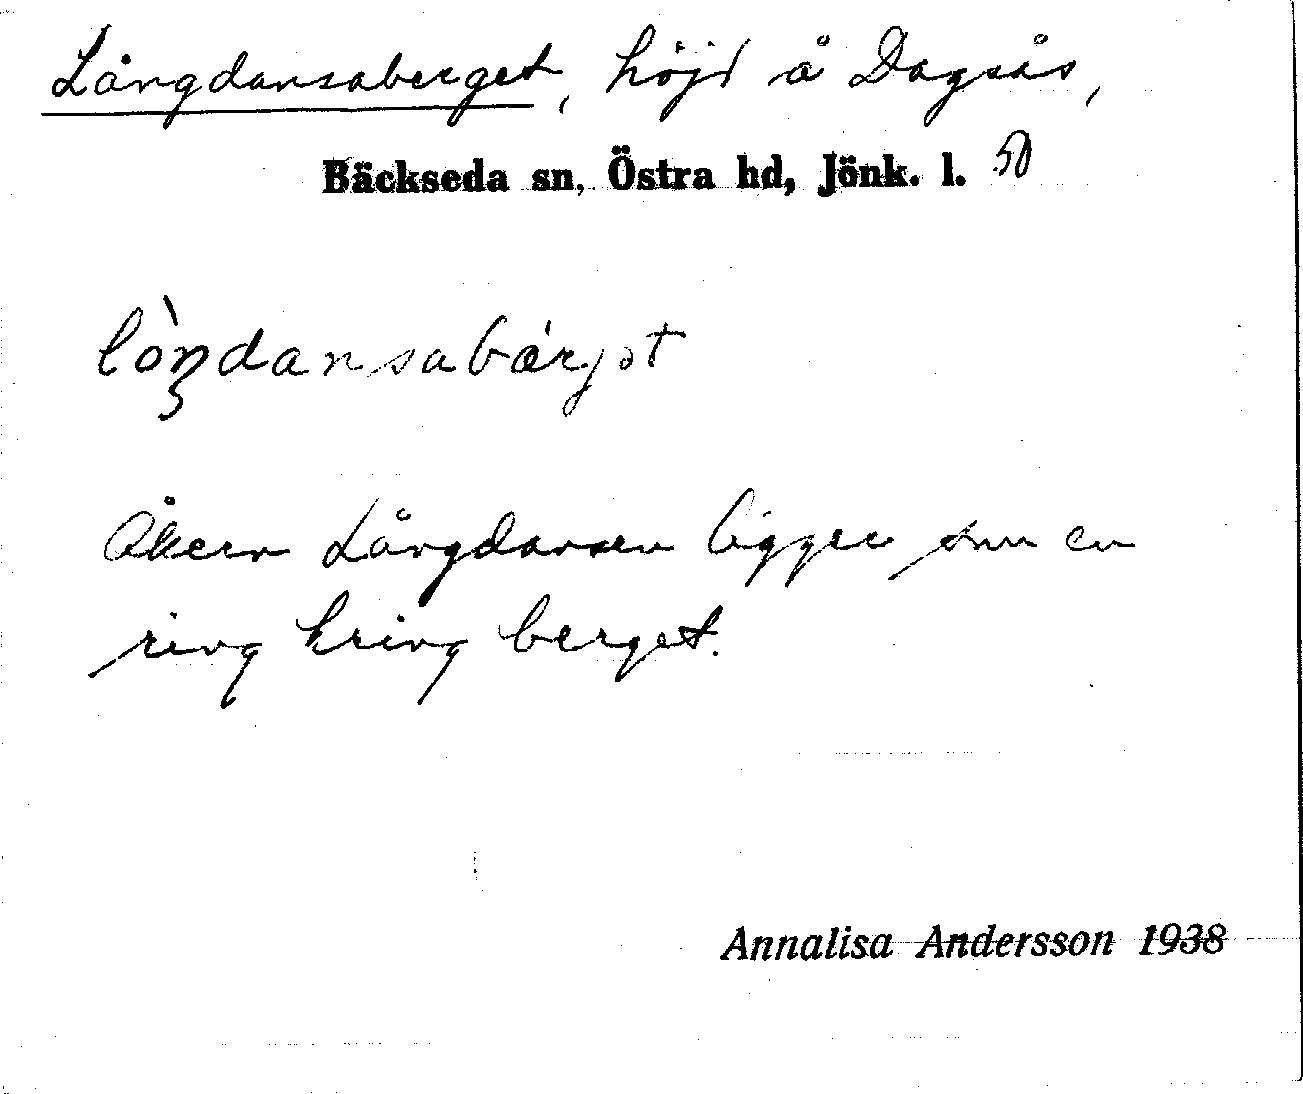 Långdansaberget, höjd å Dagsås,
Bäckseda sn, Östra hd, Jönk. l. 50
lòŋdansabárjət
Åkern Långdansen ligger som en
ring kring berget.
Annalisa Andersson 1938